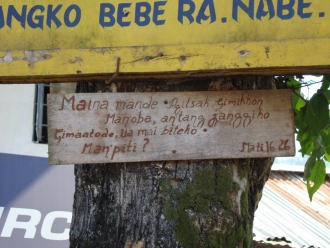 ANGKO BEBE RA. NABE.
Maina mande
Manoba, antang ganggiho
Gimaatode, ua mai biteho.
Man'piti? Mati 16 26
RC